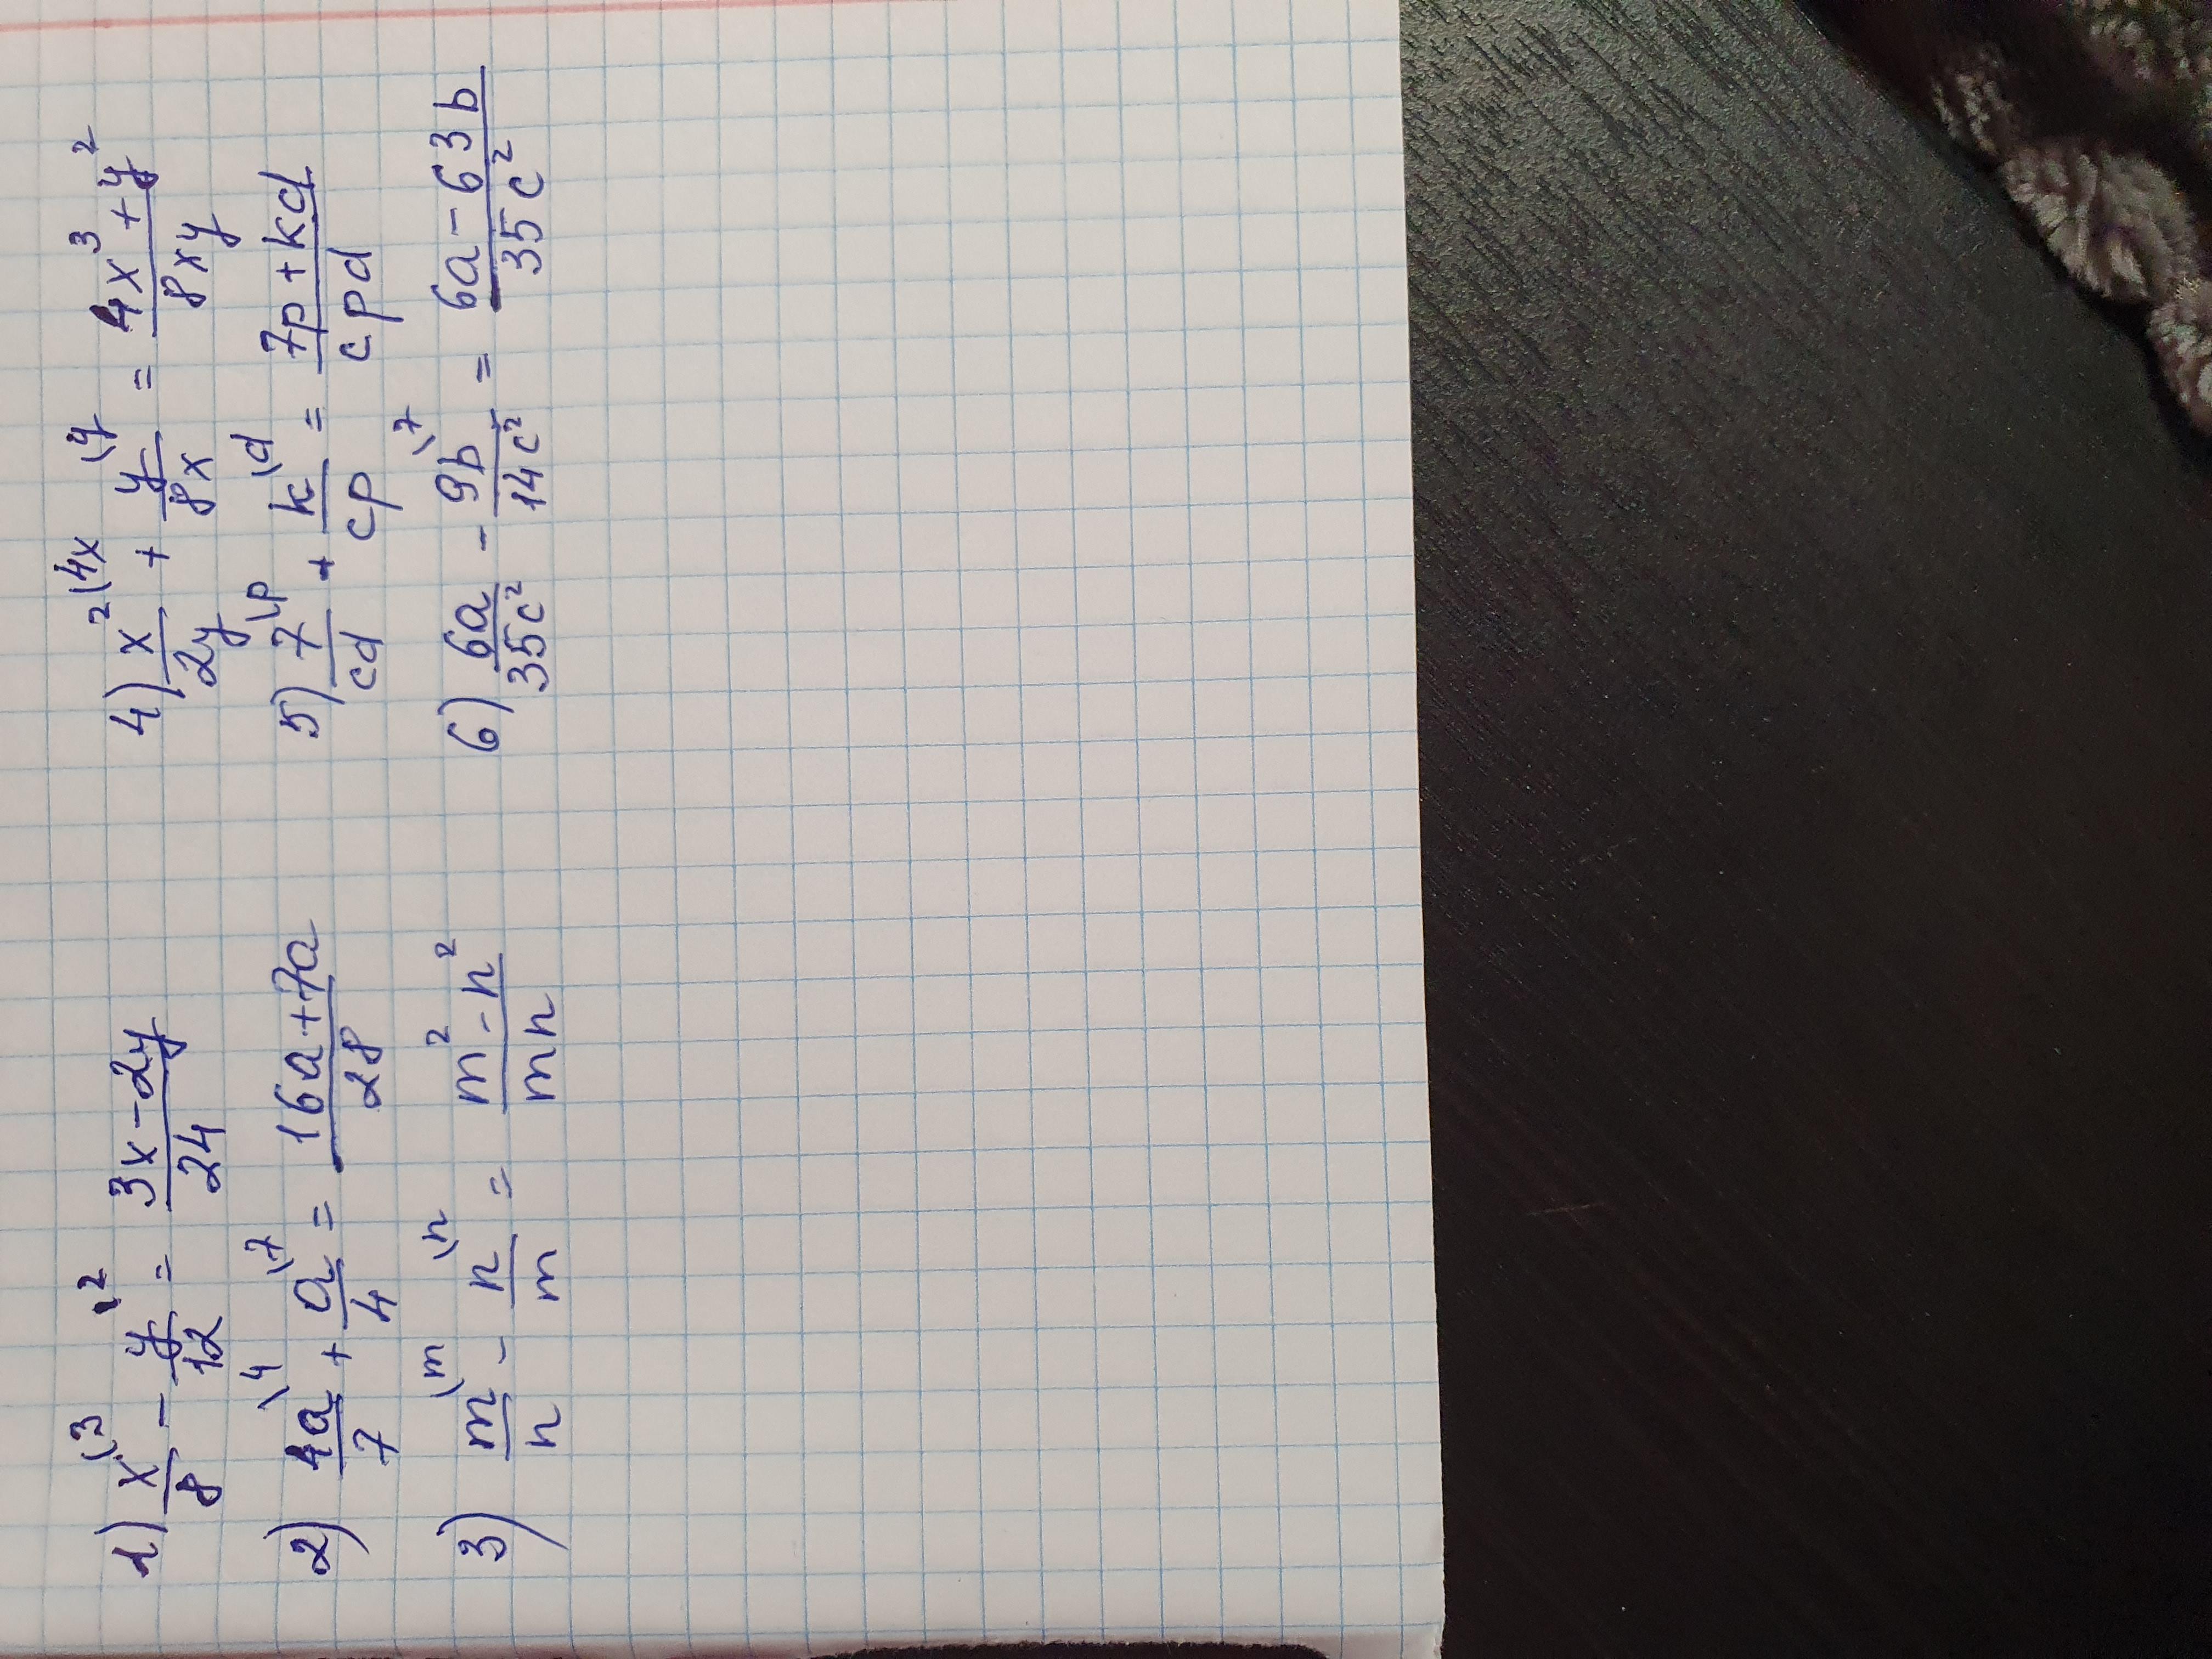 1) x\3/8 - y\2/12 = (3x-2y)/24
2) 4a\4/7 + a\7/4 = (16a+7a)/28
3) m\m/n - n\n/m = (m²-n²)/mn
4) x²\4x/2y + y\y/8x = (4x³+y²)/8xy
5) 7\p/cd + k\d/cp = (7p+kd)/cpd
6) 6a/35c² - 9b\7/14c² = (6a-63b)/35c²